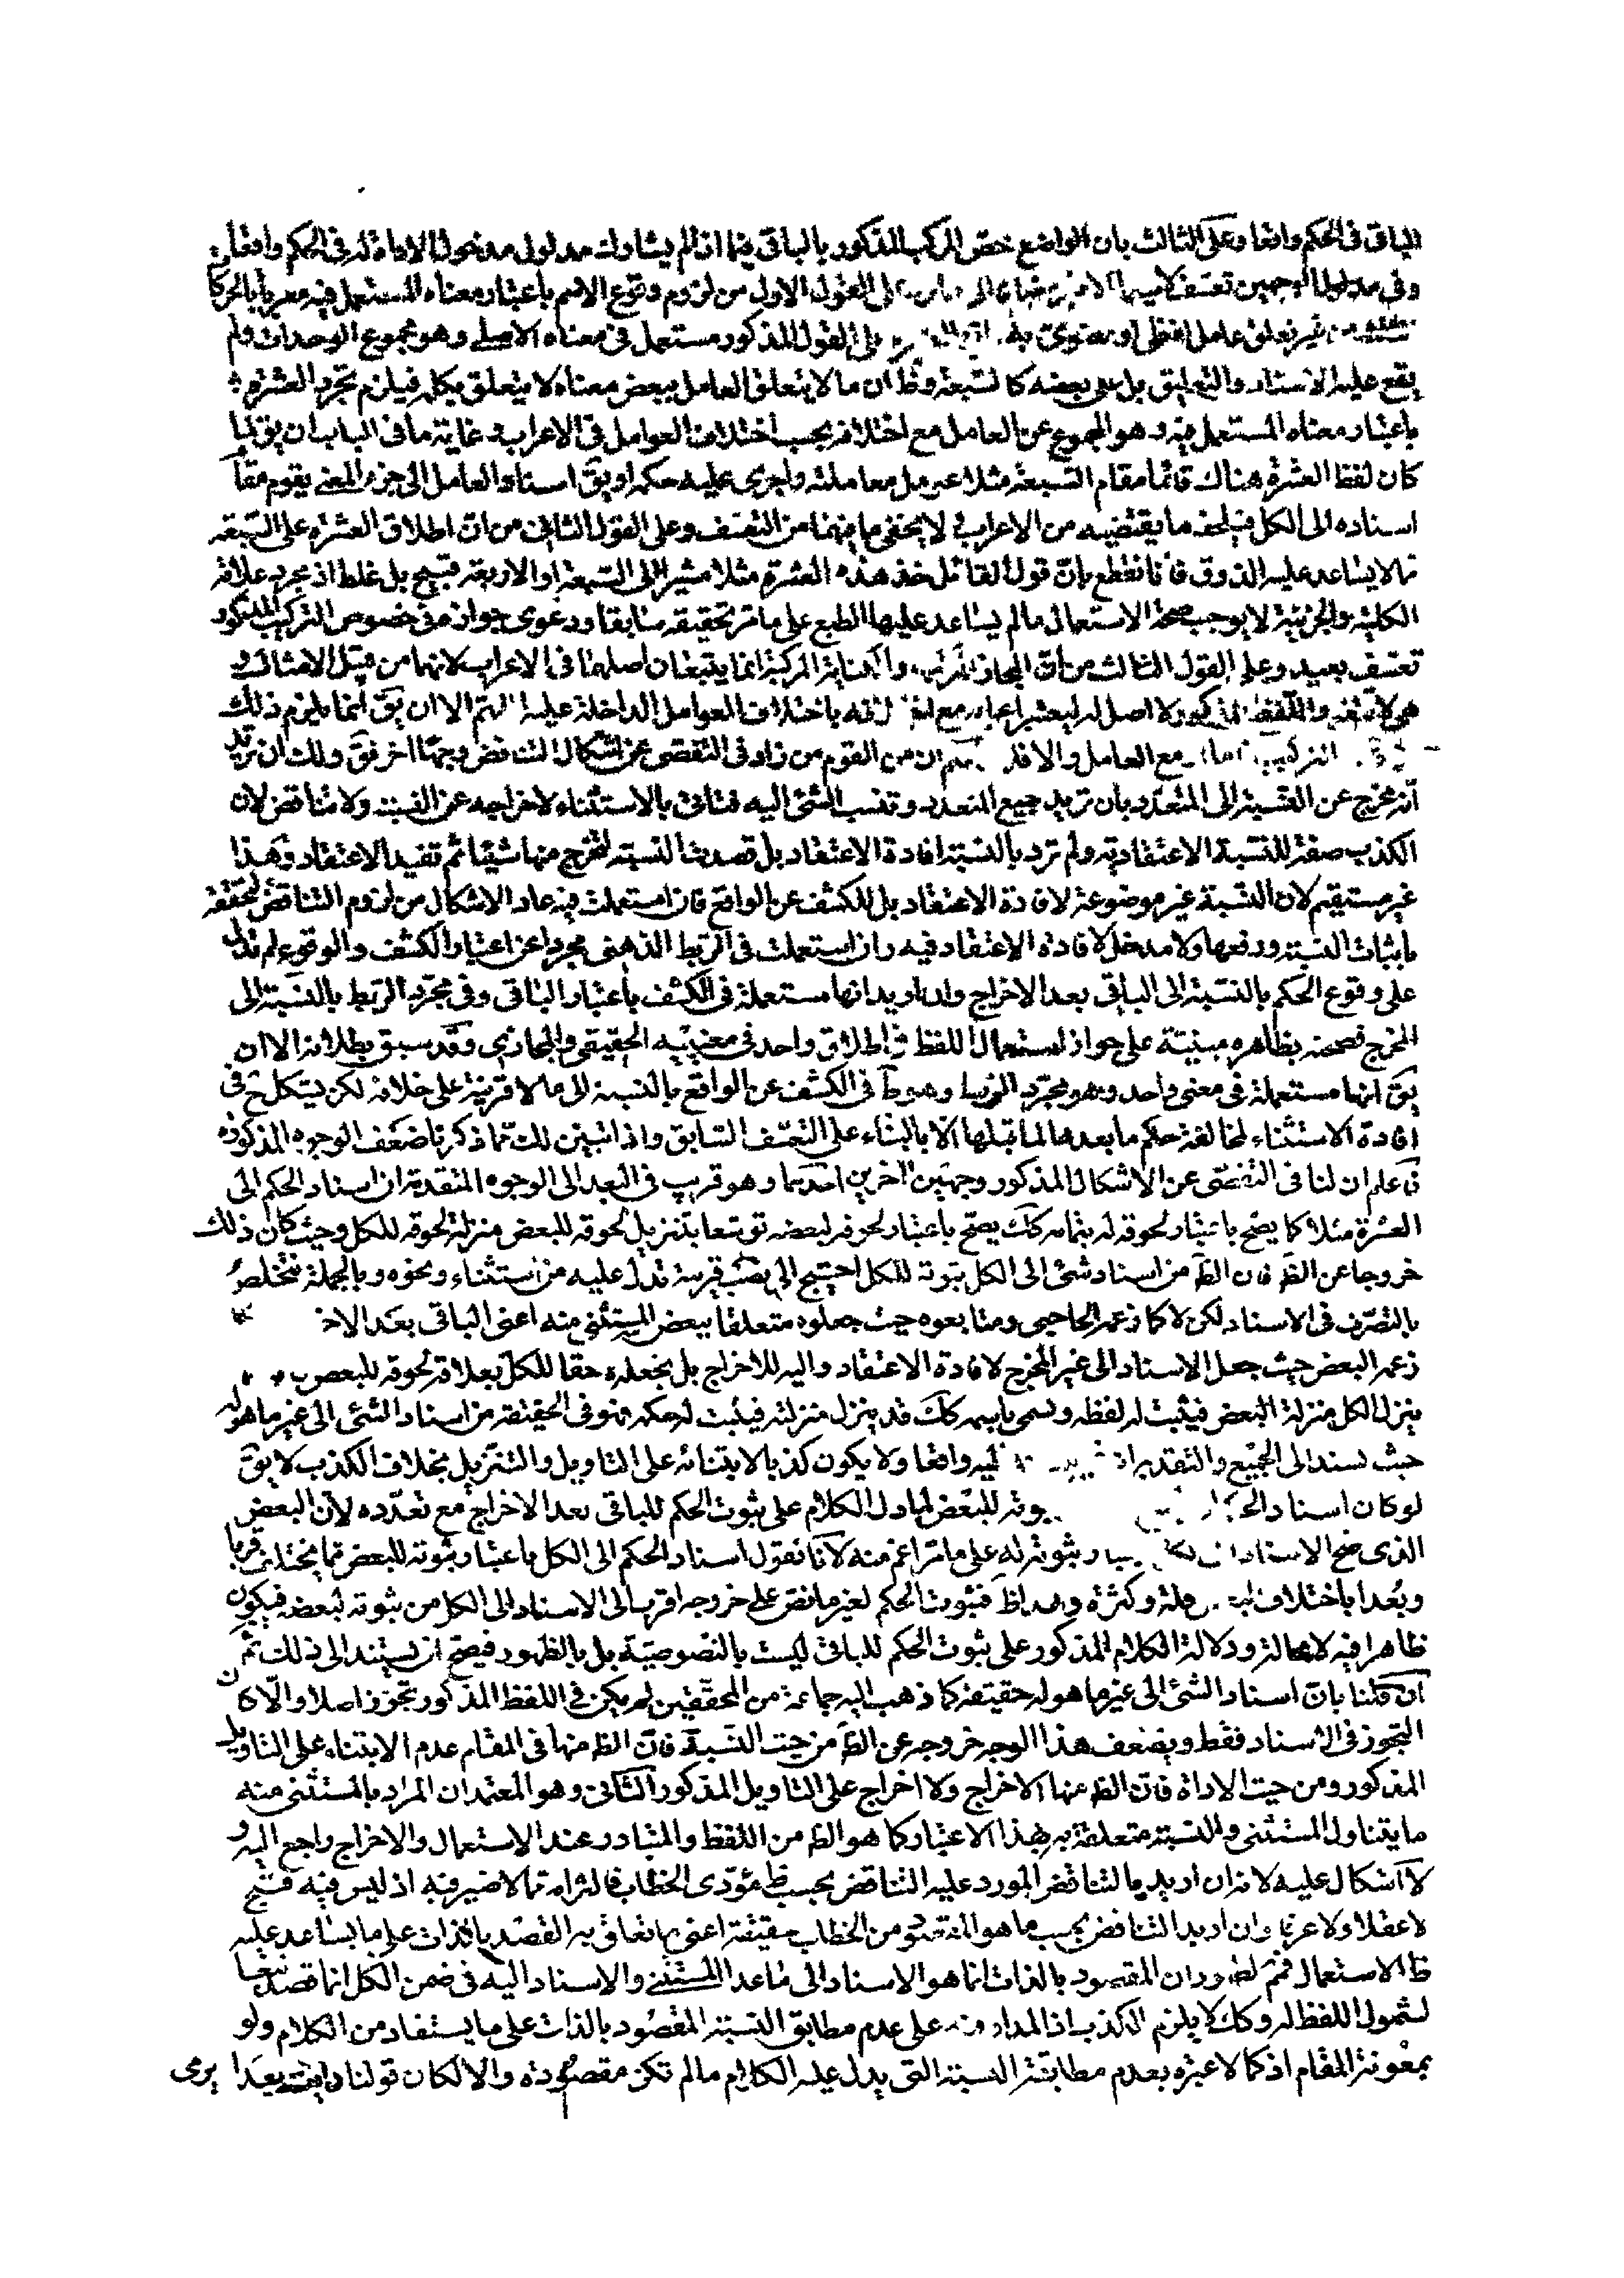 الباقى فى الحكم واقعا وعلى الثالث بان الواضع خص المركب المذكور بالباقى فيما اذا لم يشارك مدلول مدخول الاداة له فى الحكم واقعا
وفى مدلول الوجهين تعسف لاسيما الاخير القول الاول من لزوم وقوع الاسم باعتبار معناه المستعمل فيه معربا بالحركات
من غير تعلق عامل لفظى او معنوى به القول المذكور مستعمل فى معناه الاصلى وهو مجموع الوحدات ولم
يقع عليه الاسناد والتعليق بل على بعضه كالسبعة وظ ان ما لا يتعلق العامل ببعض معناه لا يتعلق بكله فيلزم تجرد العشرة
باعتبار معناه المستعمل فيه وهو المجموع عن العامل مع اختلافه بحسب اختلاف العوامل فى الاعراب وغاية ما فى الباب ان يق لما
كان لفظ العشرة هناك قائما مقام السبعة مثلا عومل معاملته واجرى عليه حكمه او يق اسناد العامل الى جزء المعنى يقوم مقام
اسناده الى الكل فيلحقه ما يقتضيه من الاعراب ولا يخفى ما فيهما من التعسف وعلى القول الثانى من ان اطلاق العشرة على السبعة
مما لا يساعد عليه الذوق فانا نقطع بان قول القائل خذ هذه العشرة مثلا مشيرا الى السبعة او الاربعة قبيح بل غلط اذ مجرد علاقة
الكلية والجزئية لا يوجب صحة الاستعمال ما لم يساعد عليها الطبع على ما مر تحقيقه سابقا ودعوى جوازه فى خصوص التركيب المذكور
تعسف بعيد وعلى القول الثالث من ان المجاز المركبة والكناية المركبة انما يتبعان اصلهما فى الاعراب لانهما من قبيل الامثال و
هى لا تتغير واللفظ المذكور لا اصل له ليعتبر اعرابه مع اختلافه باختلاف العوامل الداخلة عليه اللهم الا ان يق انما يلزم ذلك
التركيب مع العامل والا فلا ان من القوم من زاد فى التفصى عن اشكال التناقض وجها اخر فق ولك ان تريد
انه مخرج عن النسبة الى المتعدد بان تريد جميع المتعدد وتنسب الشئ اليه فتاتى بالاستثناء لاخراجه عن النسبة ولا تناقض لان
الكذب صفة للنسبة الاعتقادية ولم ترد بالنسبة افادة الاعتقاد بل قصدت النسبة لتخرج منها شيئا ثم تفيد الاعتقاد وهذا
غير مستقيم لان النسبة غير موضوعة لافادة الاعتقاد بل للكشف عن الواقع فان استعملت فيه عاد الاشكال من لزوم التناقض لتحققه
باثبات النسبة ورفعها ولا مدخل لافادة الاعتقاد فيه وان استعملت فى الربط الذهنى مجردا عن اعتبار الكشف والوقوع لم تدل
على وقوع الحكم بالنسبة الى الباقى بعد الاخراج وان اريد انها مستعملة فى الكشف باعتبار الباقى وفى مجرد الربط بالنسبة الى
المخرج فصحته بظاهره مبنية على جواز استعمال اللفظ فى اطلاق واحد فى معنييه الحقيقى والمجازى وقد سبق بطلانه الا ان
يق انها مستعملة فى معنى واحد وهو مجرد الربط وهو ظ فى الكشف عن الواقع بالنسبة الى ما لا قرينة على خلافه لكن يشكل ح فى
افادة الاستثناء لمخالفة حكم ما بعدها لما قبلها الا بالبناء على التعسف السابق واذا تبين لك مما ذكرنا ضعف الوجوه المذكورة
فاعلم ان لنا فى التفصى عن الاشكال المذكور وجهين اخرين احدهما وهو قريب فى البعد الى الوجوه المتقدمة ان اسناد الحكم الى
العشرة مثلا كما يصح باعتبار لحوقه له بتمامه كك يصح باعتبار لحوقه لبعضه توسعا بتنزيل لحوقه للبعض منزلة لحوقه للكل وحيث كان ذلك
خروجا عن الظ فان الظ من اسناد شئ الى الكل ثبوته للكل احتيج الى نصب قرينة تدل عليه من استثناء ونحوه وبالجملة نتخلص
بالتصرف فى الاسناد لكن لا كما زعمه الحاجبى ومتابعوه حيث جعلوه متعلقا ببعض المستثنى منه اعنى الباقى بعد الاخ
زعمه البعض حيث جعل الاسناد الى غير المخرج لافادة الاعتقاد واليه للاخراج بل بجعله حقا للكل بعلاقة لحوقه للبعض
ينزل الكل منزلة البعض فيثبت له لفظه ويسمى باسمه كك قد ينزل منزلته فيثبت له حكمه فهو فى الحقيقة من اسناد الشئ الى غير ما هو له
حيث يسند الى الجميع والتقدير واقعا ولا يكون كذبا لابتنائه على التاويل والتنزيل بخلاف الكذب لا يق
لو كان اسناد الحكم ثبوته للبعض لما دل الكلام على ثبوت الحكم للباقى بعد الاخراج مع تعدده لان البعض
الذى صح الاسناد ثبوته له على ما مر اعم منه لانا نقول اسناد الحكم الى الكل باعتبار ثبوته للبعض مما يختلف قربا
وبعدا باختلاف قلة وكثرة وظ فثبوت الحكم لغير ما نص على خروجه اقرب الى الاسناد الى الكل من ثبوته لبعضه فيكون
ظاهرا فيه لا محالة ودلالة الكلام المذكور على ثبوت الحكم للباقى ليست بالنصوصية بل بالظهور فيصح ان يستند الى ذلك ثم
ان قلنا بان اسناد الشئ الى غير ما هو له حقيقة كما ذهب اليه جماعة من المحققين لم يكن فى اللفظ المذكور تجوز اصلا والا كان
التجوز فى الاسناد فقط ويضعف هذا الوجه خروجه عن الظ من حيث النسبة فان الظ منها فى المقام عدم الابتناء على التاويل
المذكور ومن حيث الاداة فان الظ منها الاخراج ولا اخراج على التاويل المذكور الثانى وهو المعتمد ان المراد بالمستثنى منه
ما يتناول المستثنى والنسبة متعلقة به بهذا الاعتبار كما هو الظ من اللفظ والمتبادر عند الاستعمال والاخراج راجع اليه و
لا اشكال عليه لانه ان اريد بالتناقض المورد عليه التناقض بحسب ظ مؤدى الخطاب فالتزامه مما لا ضير فيه اذ ليس فيه قبح
لا عقلا ولا عرفا وان اريد التناقض بحسب ما هو المقصود من الخطاب حقيقة اعنى ما تعلق به القصد بالذات على ما يساعد عليه
ظ الاستعمال فمم لظهور ان المقصود بالذات انما هو الاسناد الى ما عدا المستثنى والاسناد اليه فى ضمن الكل انما قصد تبعا
لشمول اللفظ له وكك لا يلزم الكذب اذ المدار فيه على عدم مطابق النسبة المقصود بالذات على ما يستفاد من الكلام ولو
بمعونة المقام اذ كما لا عبرة بعدم مطابقة النسبة التى يدل عليه الكلام ما لم تكن مقصودة والا لكان قولنا رايت بعدا يرمى